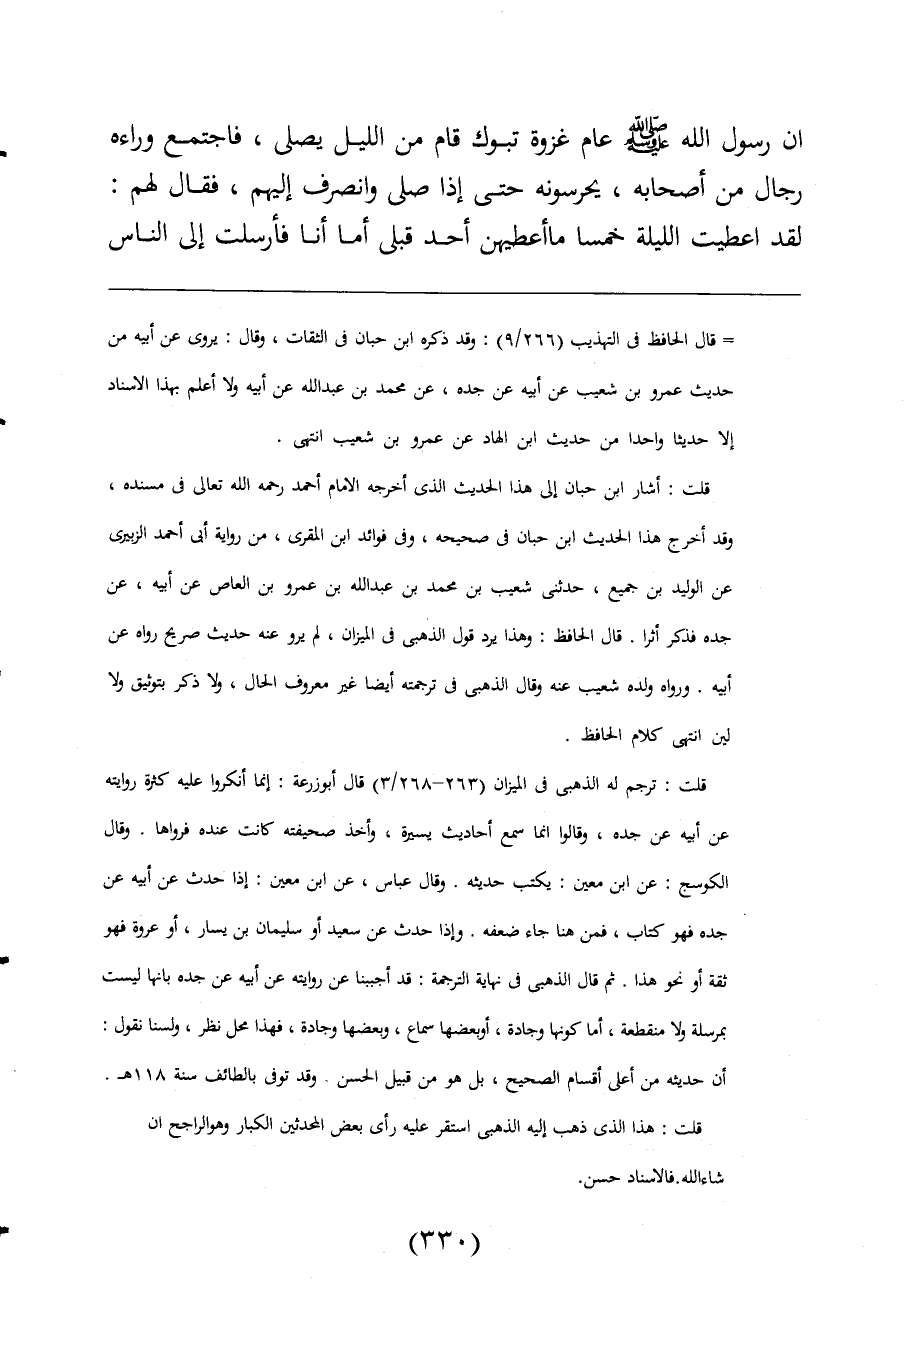 ان رسول الله ﷺ عام غزوة تبوك قام من الليل يصلى ، فاجتمع وراءه
رجال من أصحابه ، يحرسونه حتى إذا صلى وانصرف إليهم ، فقال لهم :
لقد اعطيت الليلة خمسا ماأعطيهن أحد قبلى أما أنا فأرسلت إلى الناس
= قال الحافظ فى التهذيب (٩/٢٦٦) : وقد ذكره ابن حبان فى الثقات ، وقال : يروى عن أبيه من
حديث عمرو بن شعيب عن أبيه عن جده ، عن محمد بن عبدالله عن أبيه ولا أعلم بهذا الاسناد
إلا حديثا واحدا من حديث ابن الهاد عن عمرو بن شعيب انتهى .
قلت : أشار ابن حبان إلى هذا الحديث الذى أخرجه الامام أحمد رحمه الله تعالى فى مسنده ،
وقد أخرج هذا الحديث ابن حبان فى صحيحه ، وفى فوائد ابن المقرى ، من رواية أبى أحمد الزبيرى
عن الوليد بن جميع ، حدثنى شعيب بن محمد بن عبدالله بن عمرو بن العاص عن أبيه ، عن
جده فذكر أثرا . قال الحافظ : وهذا يرد قول الذهبى فى الميزان ، لم يرو عنه حديث صريح رواه عن
أبيه . ورواه ولده شعيب عنه وقال الذهبى فى ترجمته أيضا غير معروف الحال ، ولا ذكر بتوثيق ولا
لين انتهى كلام الحافظ .
قلت : ترجم له الذهبى فى الميزان (٢٦٣–٣/٢٦٨) قال أبوزرعة : إنما أنكروا عليه كثرة روايته
عن أبيه عن جده ، وقالوا انما سمع أحاديث يسيرة ، وأخذ صحيفته كانت عنده فرواها . وقال
الكوسج : عن ابن معين : يكتب حديثه . وقال عباس ، عن ابن معين : إذا حدث عن أبيه عن
جده فهو كتاب ، فمن هنا جاء ضعفه . وإذا حدث عن سعيد أو سليمان بن يسار ، أو عروة فهو
ثقة أو نحو هذا . ثم قال الذهبى فى نهاية الترجمة : قد أجبنا عن روايته عن أبيه عن جده بانها ليست
بمرسلة ولا منقطعة ، أما كونها وجادة ، أوبعضها سماع ، وبعضها وجادة ، فهذا محل نظر ، ولسنا نقول :
أن حديثه من أعلى أقسام الصحيح ، بل هو من قبيل الحسن . وقد توفى بالطائف سنة ١١٨هـ .
قلت : هذا الذى ذهب إليه الذهبى استقر عليه رأى بعض المحدثين الكبار وهوالراجح ان
شاءالله.فالاسناد حسن.
(٣٣٠)